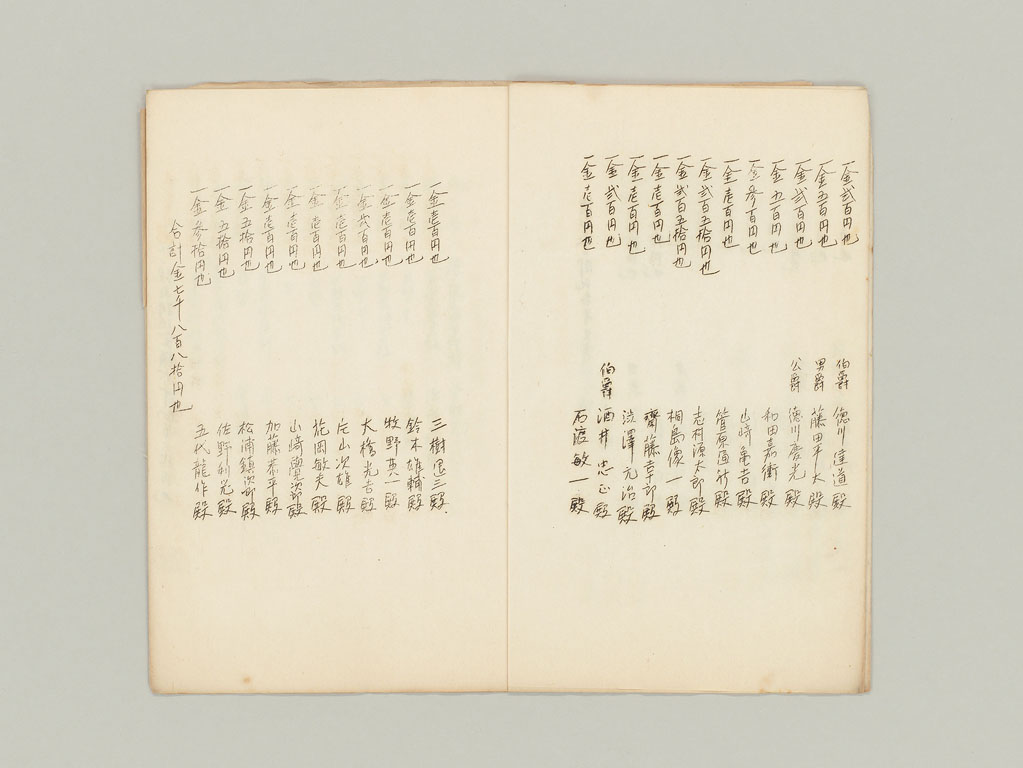 一金弐百円也 伯爵 徳川達道殿
一金五百円也 男爵 藤田平太殿
一金弐百円也 公爵 徳川慶光殿
一金五百円也 和田嘉衛殿
一金参百円也 山崎亀吉殿
一金壱百円也 菅原通済殿
一金弐百五拾円也 志村源太郎殿
一金弐百五拾円也 相島優一殿
一金壱百円也 齋藤幸郎殿
一金壱百円也 渋澤元治殿
一金弐百円也 伯爵 酒井忠正殿
一金壱百円也 石渡敏一殿
一金壱百円也 三樹忠三殿
一金壱百円也 鈴木雄輔殿
一金壱百円也 牧野英一殿
一金弐百円也 大橋光吉殿
一金壱百円也 片山次雄殿
一金壱百円也 花岡敏夫殿
一金壱百円也 山崎覺次郎殿
一金壱百円也 加藤恭平殿
一金五拾円也 松浦鎮次郎殿
一金五拾円也 佐野利器殿
一金参拾円也 五代龍作殿
合計金七千八百八拾円也